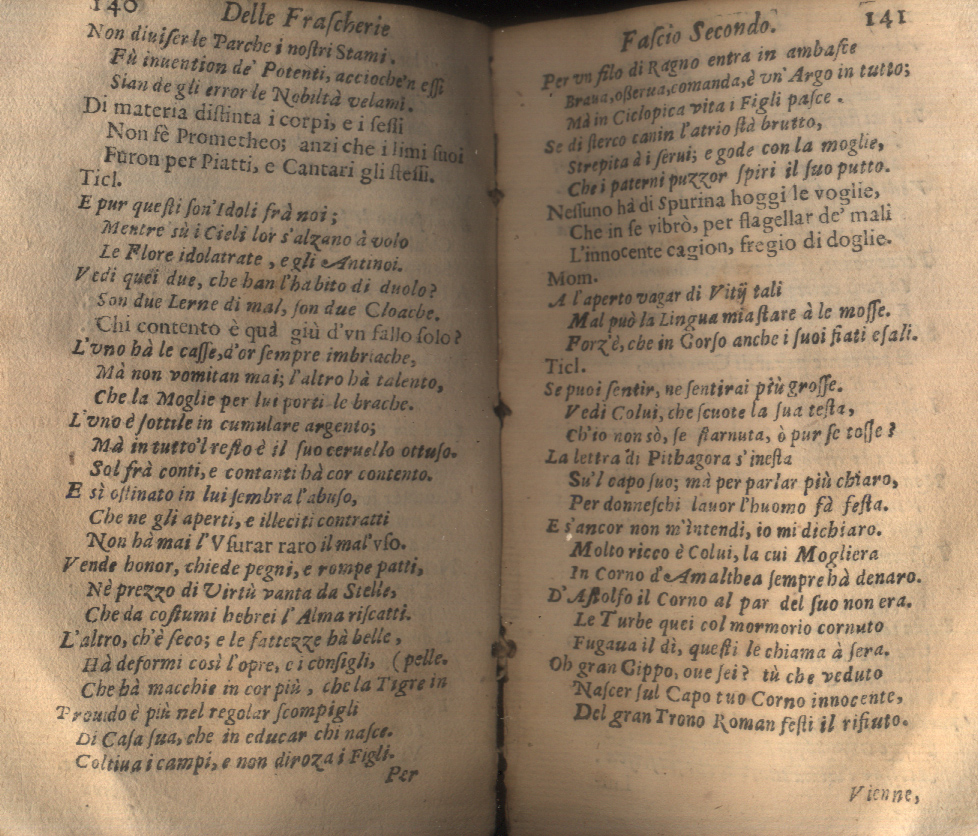 140 Delle Fraſcherie
Non diuiſer le Parche i noſtri Stami.
Fù inuention de' Potenti, accioche'n eſſi
Sian de gli error le Nobiltà velami.
Di materia diſtinta i corpi, e i ſeſſi
Non fè Prometheo; anzi che i limi ſuoi
Furon per Piatti, e Cantari gli ſteſſi.
Ticl.
E pur queſti ſon'Idoli frà noi;
Mentre sù i Cieli lor s'alzano à volo
Le Flore idolatrate, e gli Antinoi.
Vedi quei due, che han l'habito di duolo?
Son due Lerne di mal, ſon due Cloache.
Chi contento è quà giù d'vn fallo ſolo?
L'vno hà le caſſe, d'or ſempre imbriache,
Mà non vomitan mai; l'altro hà talento,
Che la Moglie per lui porti le brache.
L'vno è ſottile in cumulare argento;
Mà in tutto'l reſto è il ſuo ceruello ottuſo.
Sol frà conti, e contanti hà cor contento.
E sì oſtinato in lui ſembra l'abuſo,
Che ne gli aperti, e illeciti contratti
Non hà mai l'Vſurar raro il mal'vſo.
Vende honor, chiede pegni, e rompe patti,
Nè prezzo di Virtù vanta da Stelle,
Che da coſtumi hebrei l'Alma riſcatti.
L'altro, ch'è ſeco; e le fattezze hà belle,
Hà deformi così l'opre, e i conſigli, (pelle.
Che hà macchie in cor più, che la Tigre in
Prouido è più nel regolar ſcompigli
Di Caſa ſua, che in educar chi naſce.
Coltiua i campi, e non diroza i Figli.
Per
Faſcio Secondo. 141
Per vn filo di Ragno entra in ambaſce
Braua, oſſerua, comanda, è vn'Argo in tutto;
Mà in Ciclopica vita i Figli paſce.
Se di ſterco canin l'atrio ſtà brutto,
Strepita à i ſerui; e gode con la moglie,
Che i paterni puzzor ſpiri il ſuo putto.
Neſſuno hà di Spurina hoggi le voglie,
Che in ſe vibrò, per flagellar de' mali
L'innocente cagion, fregio di doglie.
Mom.
A l'aperto vagar di Vitij tali
Mal può la Lingua mia ſtare à le moſſe.
Forz'è, che in Corſo anche i ſuoi fiati eſali.
Ticl.
Se puoi ſentir, ne ſentirai più groſſe.
Vedi Colui, che ſcuote la ſua teſta,
Ch'io non sò, ſe ſtarnuta, ò pur ſe toſſe?
La lettra di Pithagora s'ineſta
Su'l capo ſuo; mà per parlar più chiaro,
Per donneſchi lauor l'huomo fà feſta.
E s'ancor non m'intendi, io mi dichiaro.
Molto ricco è Colui, la cui Mogliera
In Corno d'Amalthea ſempre hà denaro.
D'Aſtolfo il Corno al par del ſuo non era.
Le Turbe quei col mormorio cornuto
Fugaua il dì, queſti le chiama à ſera.
Oh gran Cippo, oue ſei? tù che veduto
Naſcer ſul Capo tuo Corno innocente,
Del gran Trono Roman feſti il rifiuto.
Vienne,